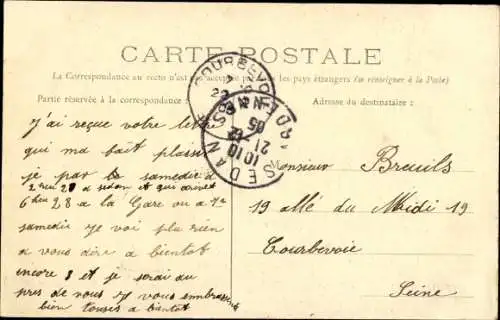 CARTE POSTALE
La Correspondance au recto n'est pas acceptée par les pays étrangers (se renseigner à la Poste)
Partie réservée à la correspondance
Adresse du destinataire :
COURBEVO
SEDAN
ARDENNES
10 10
21 12
05
J'ai reçue votre lettre
qui ma fait plaisir
je par le samedi a
2 heu 20 a sedan et qui arive
6 heu 28 a la Gare ou a 7
samedie je voi plu rien
a vous dire a bientot
encore 8 et je serai du
pres de vous j vous embrasse
bien touses a bientot
Monsieur Breuils
19 allé du Midi 19
Courbevoie
Seine